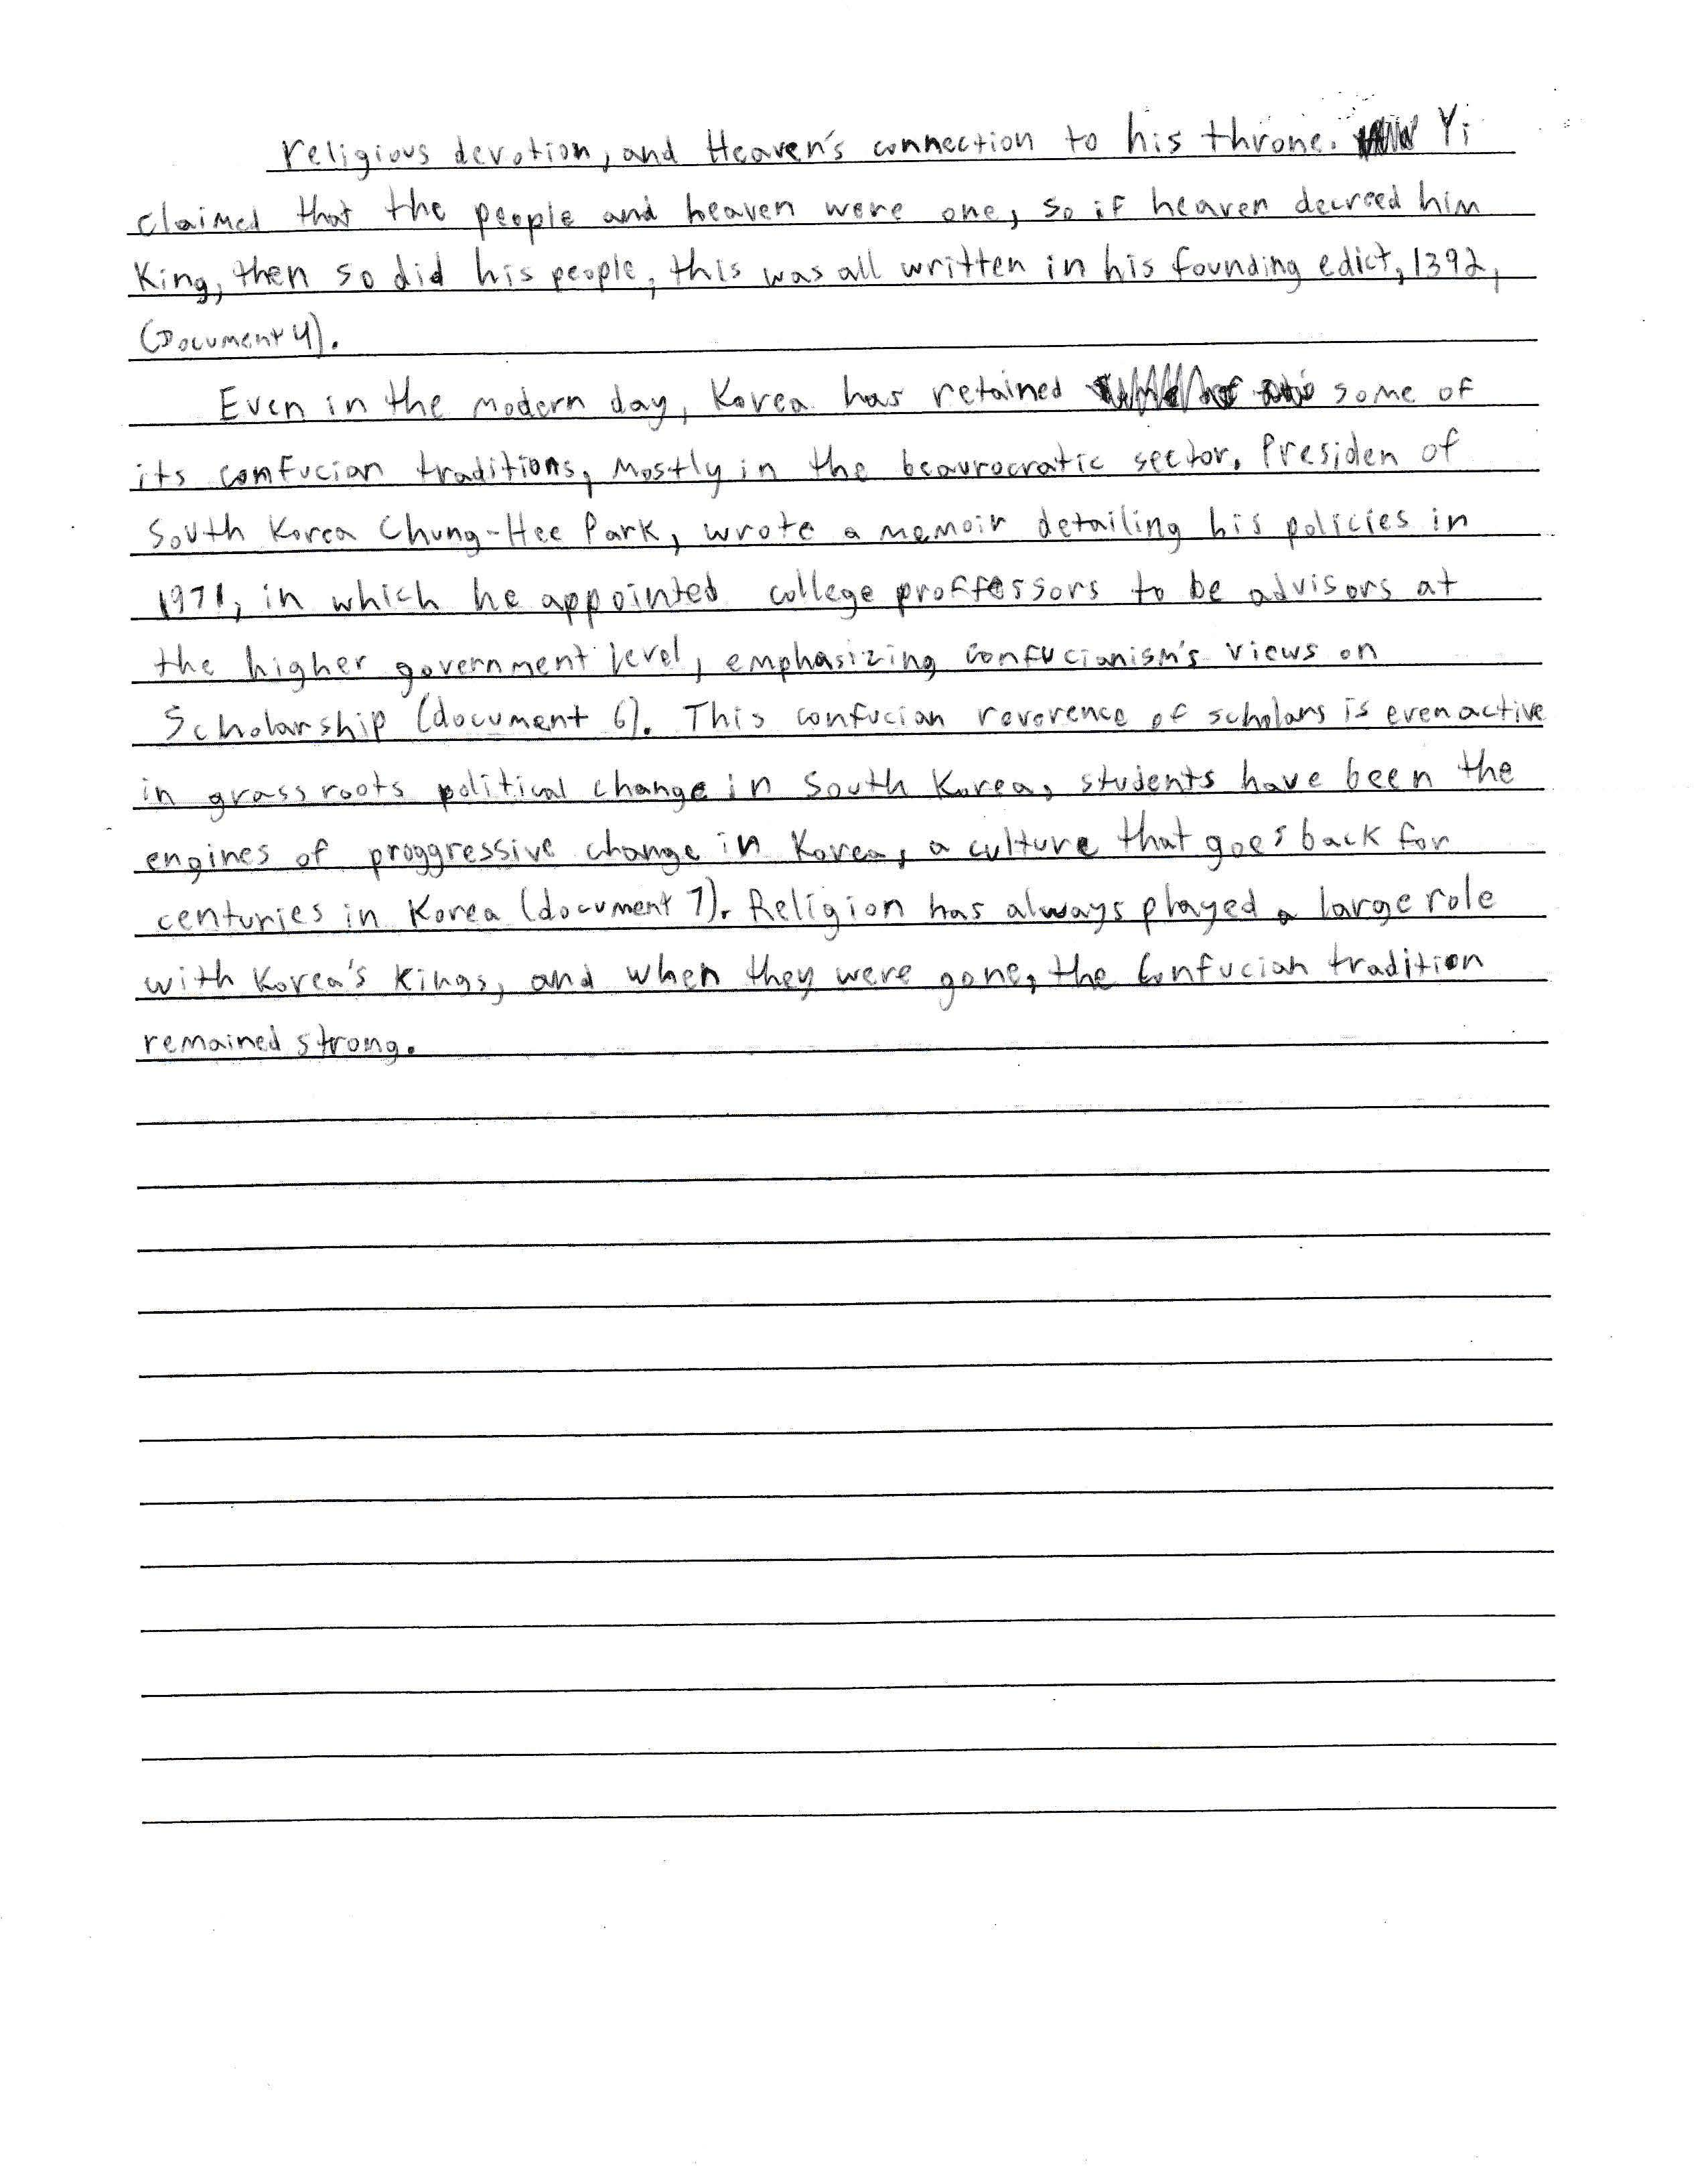 religious devotion, and Heaven's connection to his throne. Yi
claimed that the people and heaven were one, so if heaven decreed him
King, then so did his people, this was all written in his founding edict, 1392,
(Document 4).
Even in the modern day, Korea has retained some of
its confucian traditions, mostly in the beaurocratic sector. Presiden of
South Korea Chung-Hee Park, wrote a memoir detailing his policies in
1971, in which he appointed college proffessors to be advisors at
the higher government level, emphasizing confucianism's views on
Scholarship (document 6). This confucian reverence of scholars is even active
in grass roots political change in South Korea, students have been the
engines of proggressive change in Korea, a culture that goes back for
centuries in Korea (document 7). Religion has always played a large role
with Korea's Kings, and when they were gone, the Confucian tradition
remained strong.